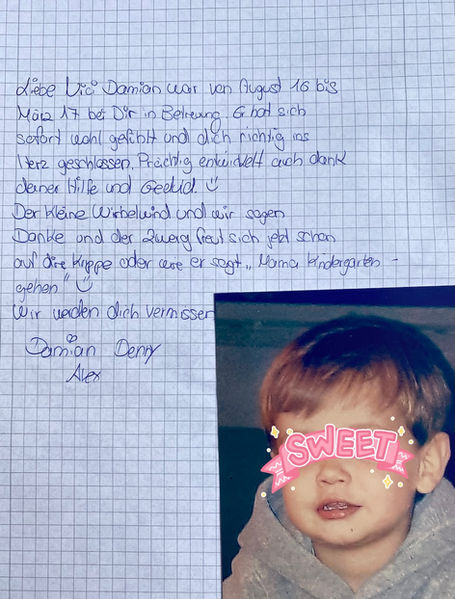 Liebe Vici Damian war von August 16 bis
März 17 bei Dir in Betreuung. Er hat sich
sofort wohl gefühlt und dich richtig ins
Herz geschlossen. Prächtig entwickelt auch dank
deiner Hilfe und Geduld. ☺
Der kleine Wirbelwind und wir sagen
Danke und der Zwerg freut sich jetzt schon
auf die Krippe oder wie er sagt „Mama Kindergarten -
gehen" ☺
Wir werden dich vermissen
Damian Denny
Alex
SWEET